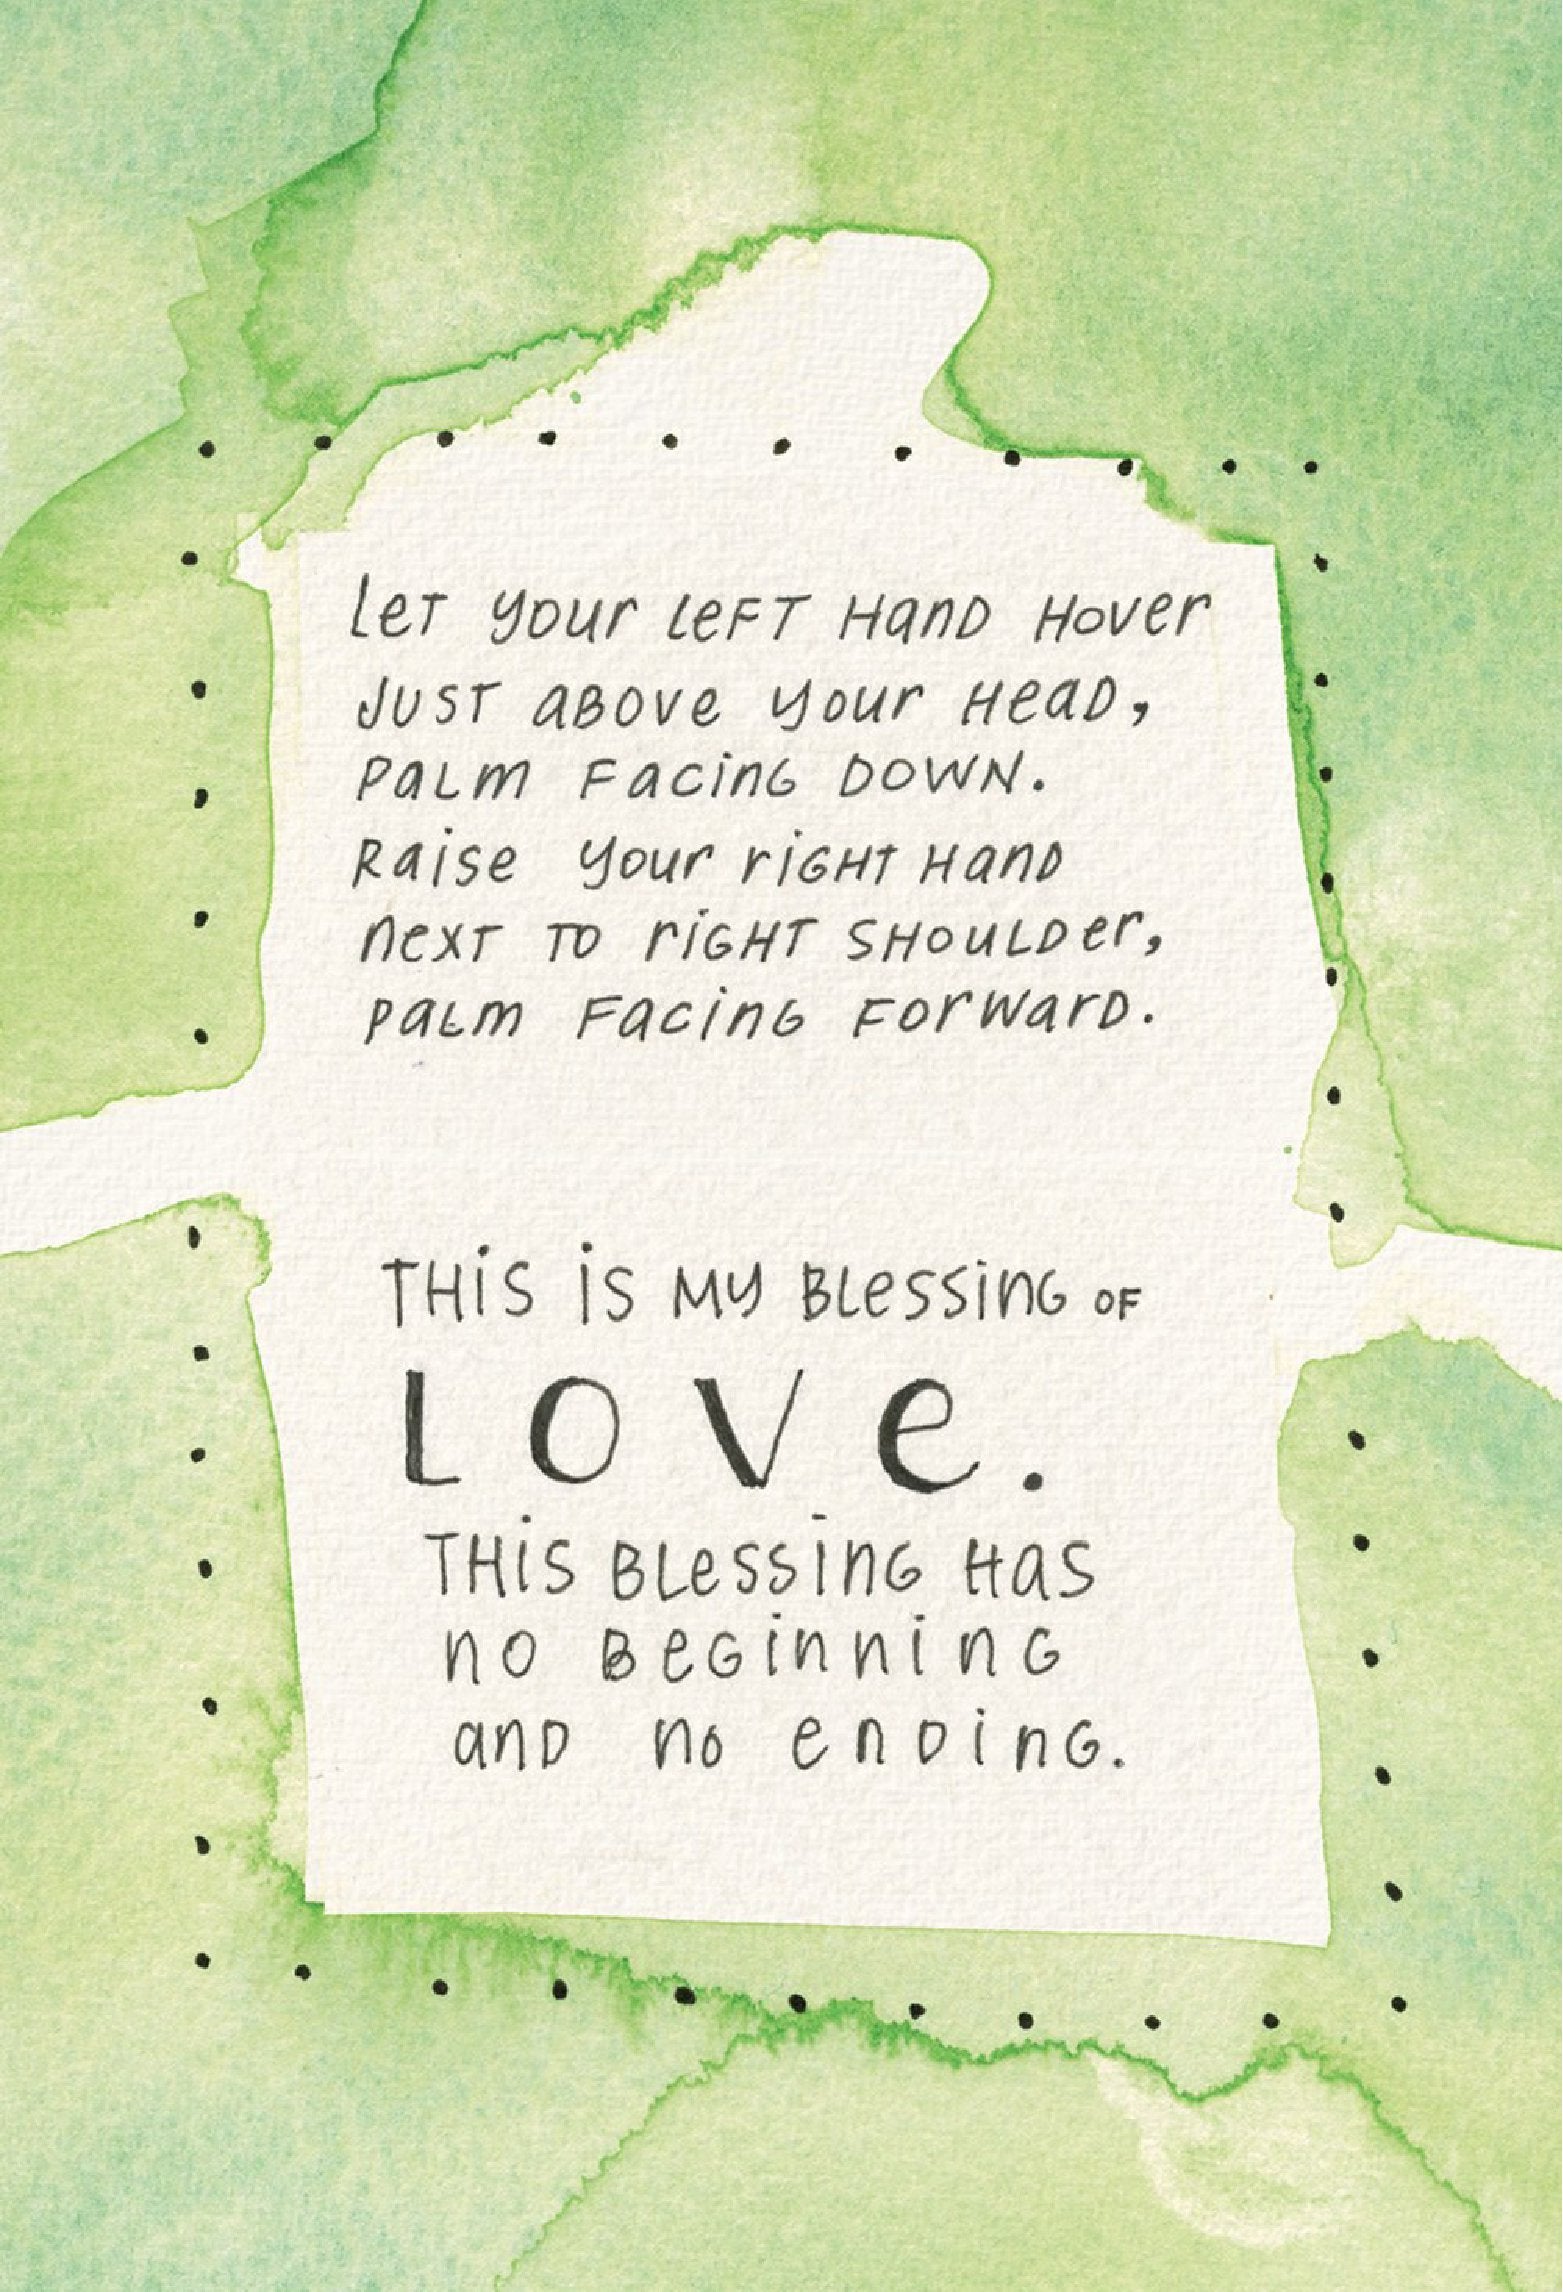 Let your left hand hover
just above your head,
palm facing down.
Raise your right hand
next to right shoulder,
palm facing forward.
This is my blessing of
Love.
This blessing has
no beginning
and no ending.